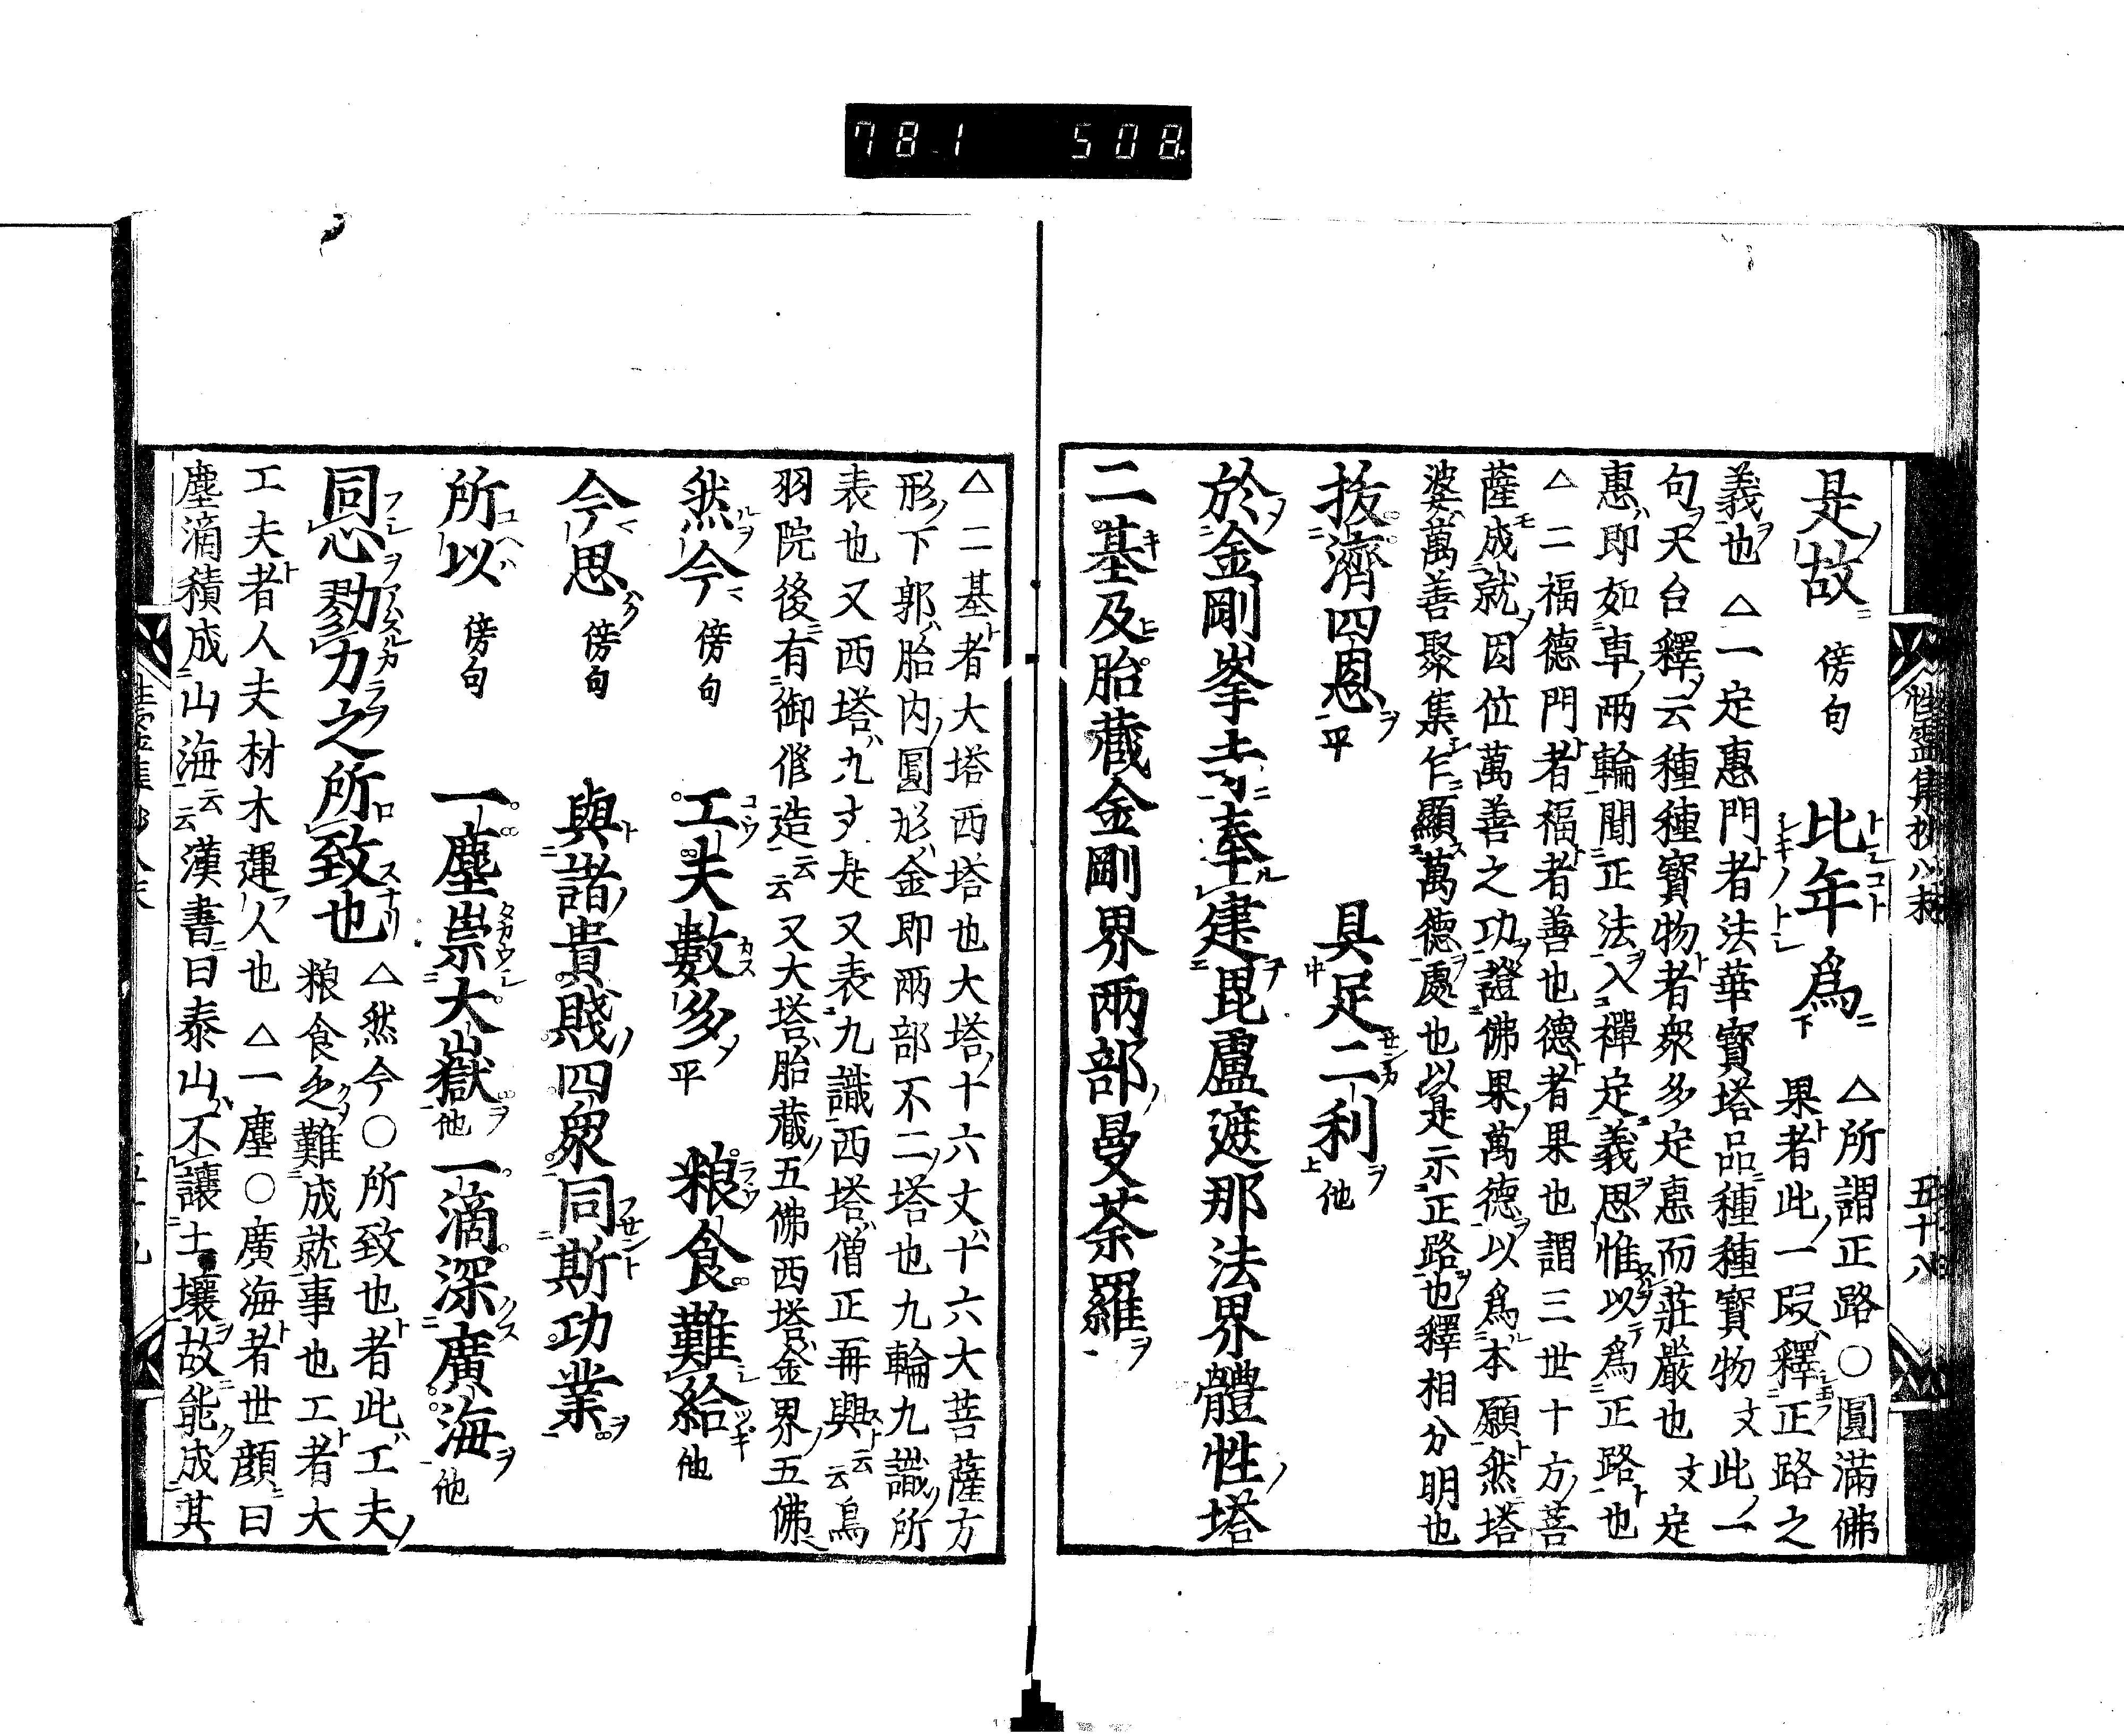 781 508
性霊集抄八末 五十八
是故 傍句 比年爲 △所謂正路○圓滿佛
果者此一段釋正路之
義也 △一定惠門者法華寳塔品種種寳物文此一
句天台釋云種種寳物者衆多定惠而莊嚴也文定
惠即如車兩輪聞正法入禪定義思惟以爲正路也
△二福德門者福者善也德者果也謂三世十方菩
薩成就因位萬善之功證佛果萬德以爲本願然塔
婆萬善聚集乍顯萬德處也以是示正路也釋相分明也
拔濟四恩平 具足二利他
於金剛峯寺奉建毘盧遮那法界體性塔
二基及胎藏金剛界兩部曼荼羅
△二基者大塔西塔也大塔十六丈十六大菩薩方
形下郭胎内圓形金即兩部不二塔也九輪九識所
表也又西塔九丈是又表九識西塔僧正再興云云鳥
羽院後有御修造云云又大塔胎藏五佛西塔金界五佛
然今 傍句 工夫數多平 粮食難給他
今思 傍句 與諸貴賤四衆同斯功業
所以 傍句 一塵崇大嶽他 一滴深廣海他
同心勠力之所致也 △然今○所致也者此工夫
粮食乏難成就事也工者大
工夫者人夫材木運人也 △一塵○廣海者世顔曰
塵滴積成山海云云漢書曰泰山不讓土壤故能成其